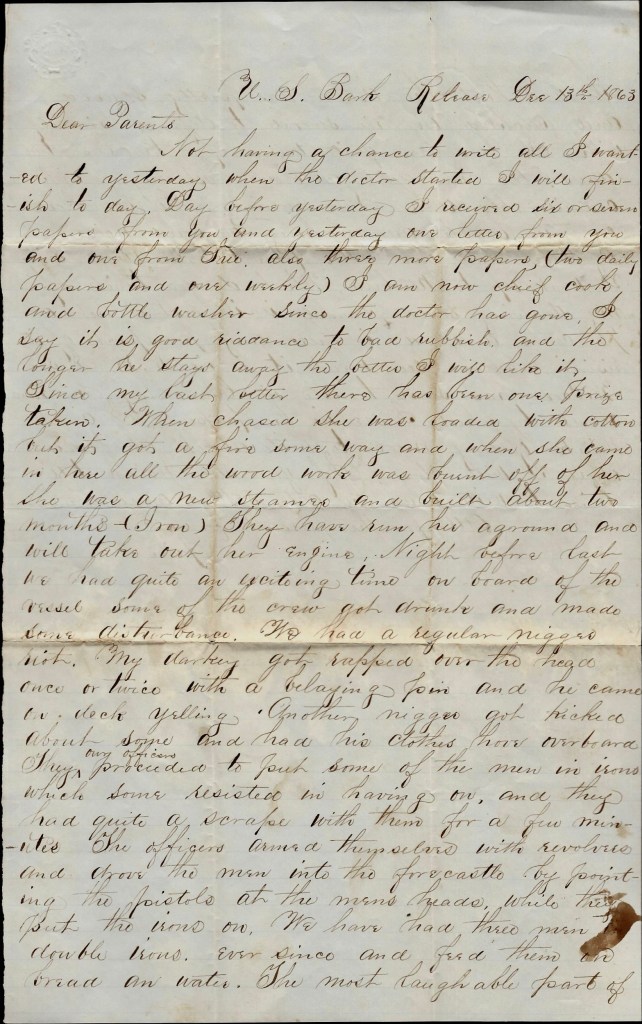 U. S. Bark Release Dec 13th 1863
Dear Parents
Not having a chance to write all I want
-ed to yesterday when the doctor started I will fin-
-ish to day. Day before yesterday I received six or seven
papers from you and yesterday one letter from you
and one from Sue. also three more papers, (two daily
papers and one weekly) I am now chief cook
and bottle washer since the doctor has gone. I
say it is good riddance to bad rubbish and the
longer he stays away the better I will like it.
Since my last letter there has been one Prize
taken. When chased she was loaded with cotton
but it got a fire some way and when she came
in here all the wood work was burnt off of her
She was a new steamer and built about two
months - (Iron) They have run her aground and
will take out her engine. Night before last
we had quite an exciteing time on board of the
vessel some of the crew got drunk and made
some disturbance. We had a regular nigger
riot. My darkey got rapped over the head
once or twice with a belaying pin and he came
on deck yelling. Another nigger got kicked
about some and had his clothes hove overboard
They our officers proceeded to put some of the men in irons
which some resisted in having on. and they
had quite a scrape with them for a few min-
-utes The officers armed themselves with revolvers
and drove the men into the forecastle by point-
ing the pistols at the mens heads, while they
put the irons on. We have had three men
double irons. ever since and feed them on
bread an water. The most laughable part of